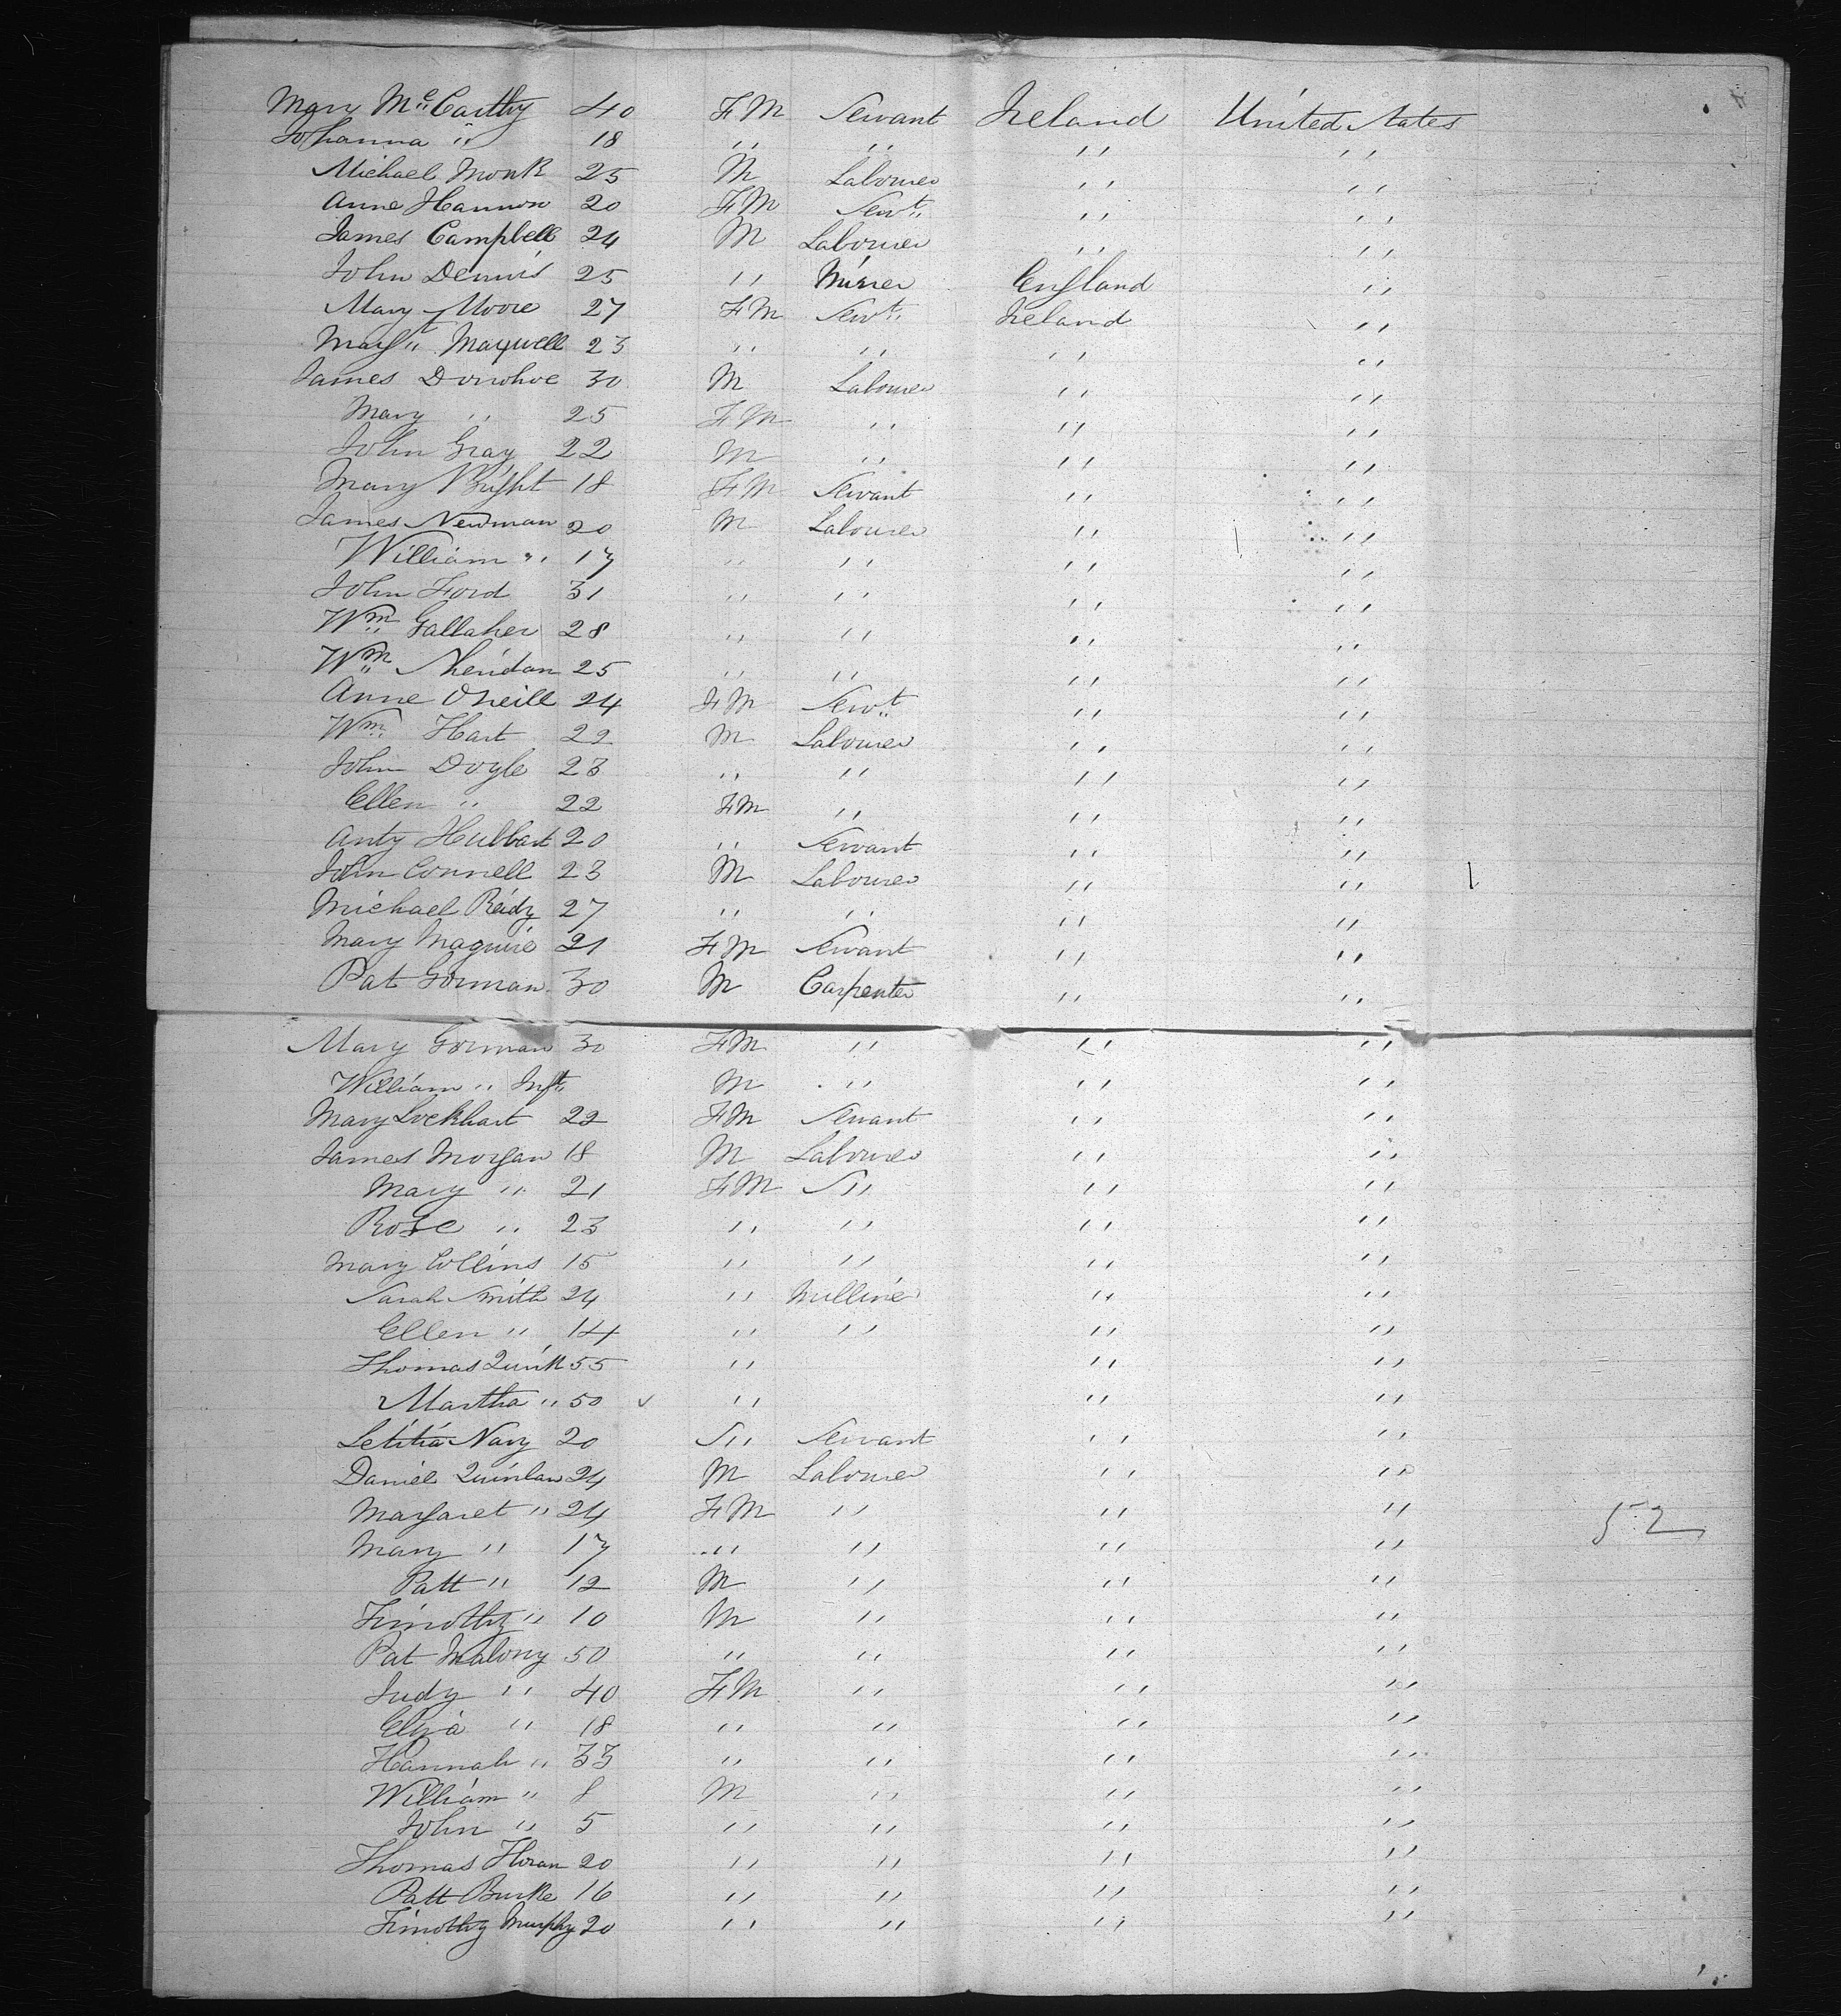 Mary McCarthy 40 FM Servant Ireland United States
Johanna " 18 " " " "
Michael Monk 25 M Labourer " "
Anne Hannon 20 FM Servt " "
James Campbell 24 M Labourer " "
John Dennis 25 " Miner England "
Mary Moore 27 FM Servt Ireland "
Margt Maxwell 23 " " " "
James Donohoe 30 M Labourer " "
Mary " 25 FM " " "
John Gray 22 M " " "
Mary Bright 18 FM Servant " "
James Newman 20 M Labourer " "
William " 17 " " " "
John Ford 31 " " " "
Wm Gallaher 28 " " " "
Wm Sheridan 25 " " " "
Anne ONeill 24 FM Servt " "
Wm Hart 22 M Labourer " "
John Doyle 23 " " " "
Ellen " 22 FM " " "
Anty Hubbart 20 " Servant " "
John Connell 23 M Labourer " "
Michael Reidy 27 " " " "
Mary Maguire 21 FM Servant " "
Pat Gorman 30 M Carpenter " "
Mary Gorman 30 FM " " "
William " Inft M " " "
Mary Lockhart 22 FM Servant " "
James Morgan 18 M Labourer " "
Mary " 21 FM S" " "
Rose " 23 " " " "
Mary Collins 15 " " " "
Sarah Smith 24 " Milliner " "
Ellen " 14 " " " "
Thomas Quirk 55 " " "
Martha " 50 " " "
Letitia Nary 20 S" Servant " "
Daniel Quinlan 24 M Labourer " "
Margaret " 24 FM " " " 52
Mary " 17 " " " "
Patt " 12 M " " "
Timothy " 10 M " " "
Pat Malony 50 " " " "
Judy " 40 FM " " "
Eliza " 18 " " " "
Hannah " 33 " " " "
William " 8 M " " "
John " 5 " " " "
Thomas Horan 20 " " " "
Patt Burke 16 " " " "
Timothy Murphy 20 " " " "